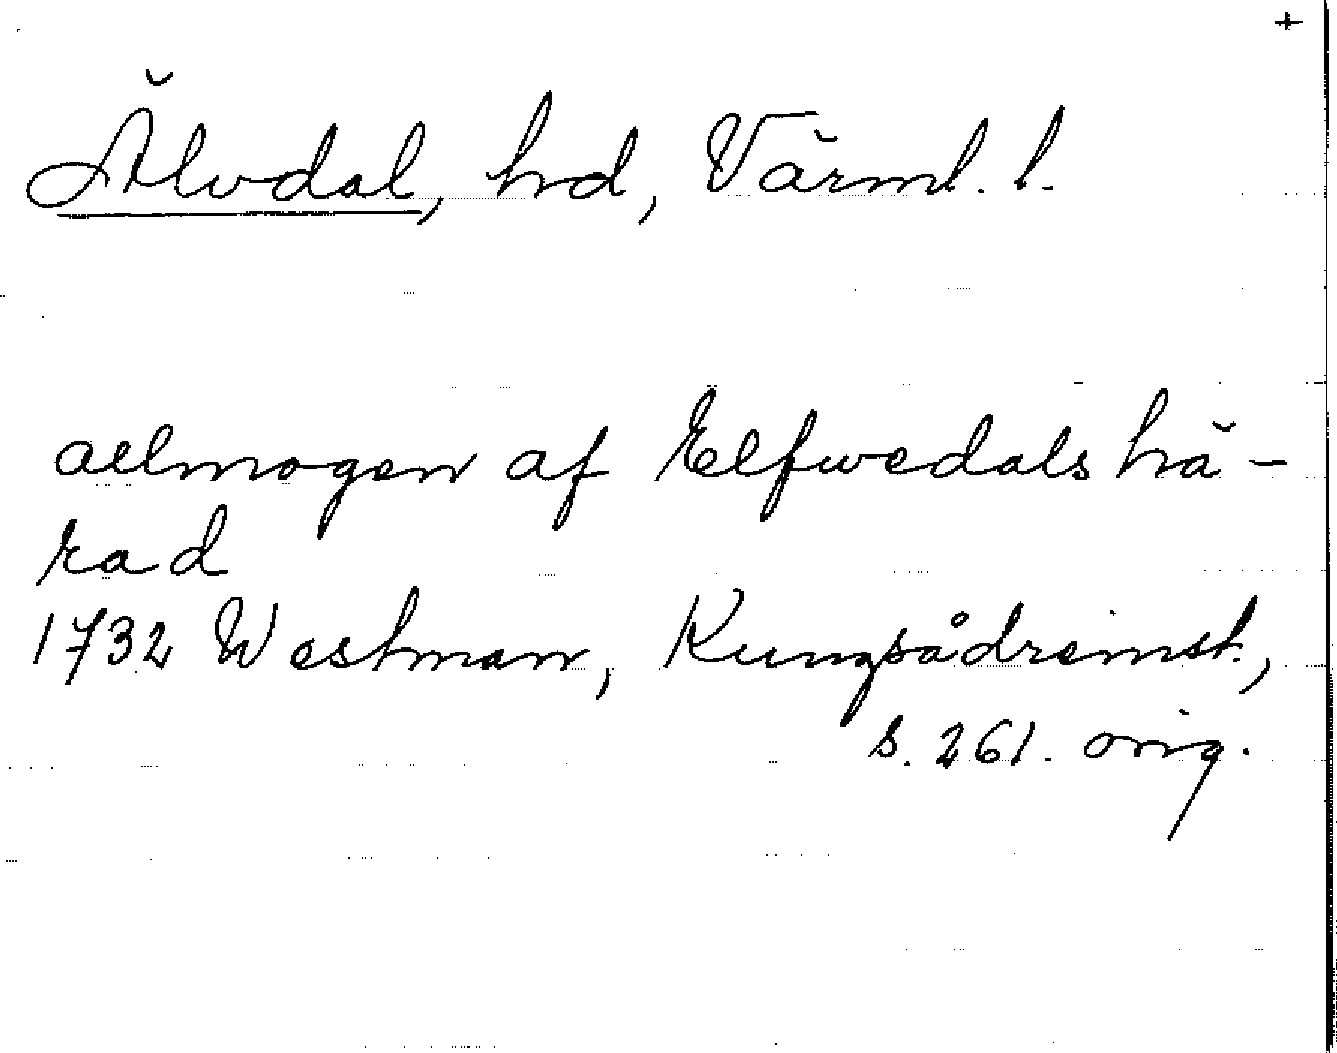 +
Älvdal, hd, Värml. l.
allmogen af Elfwedals hä-
rad
1732 Westman, Kungsådreinsk.,
s. 261. orig.